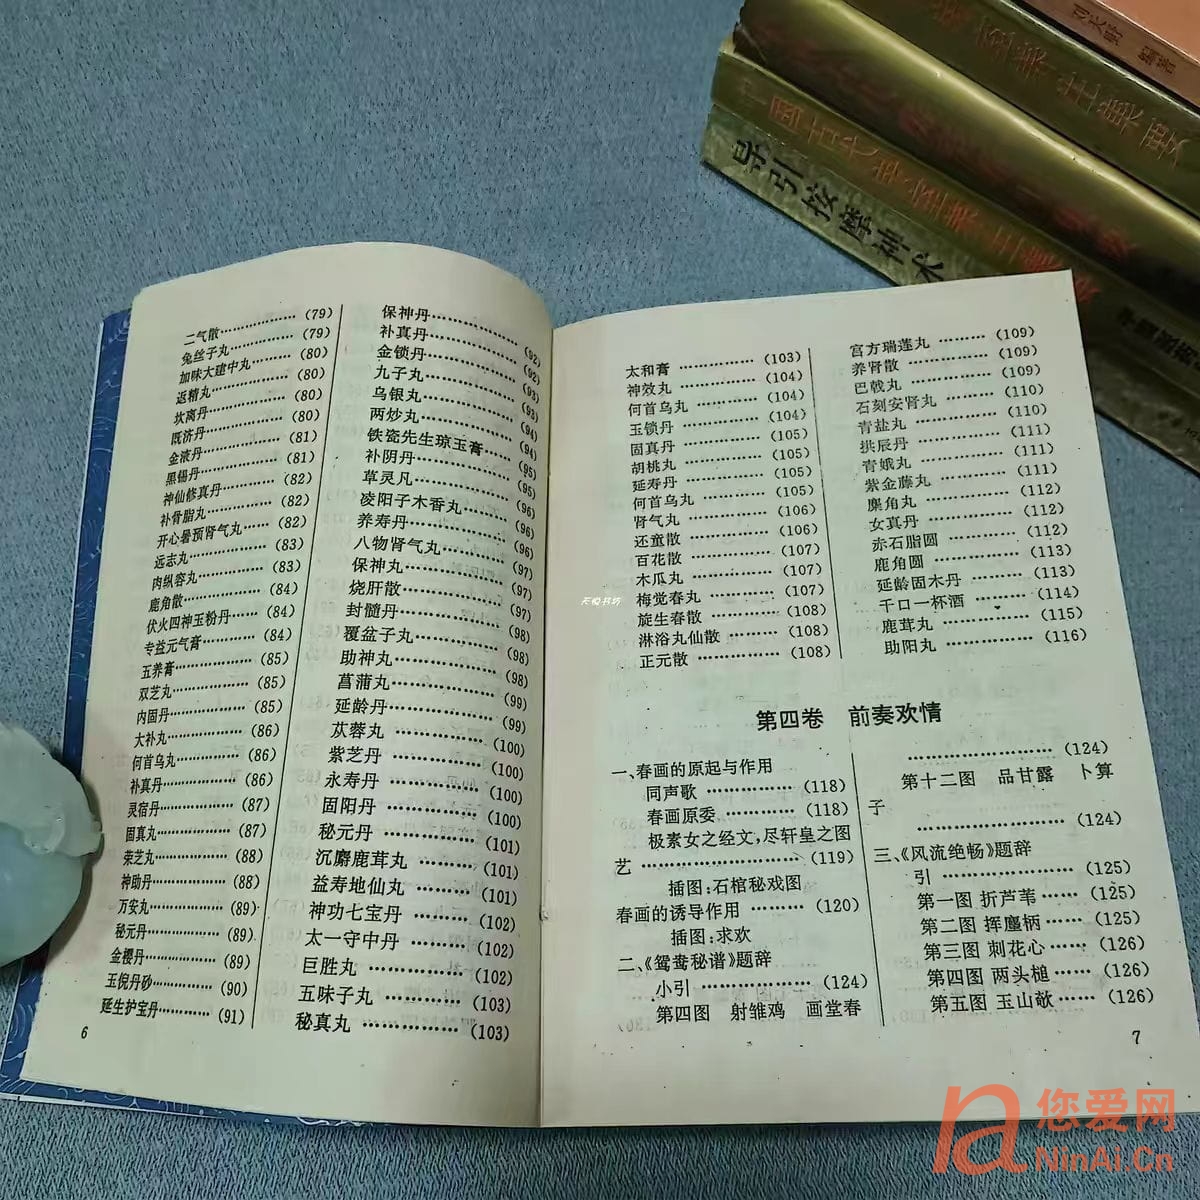 刘天野 编著
导引按摩神术
二气散……(79)
兔丝子丸……(79)
加味大建中丸……(80)
返精丸……(80)
坎离丹……(80)
既济丹……(80)
金液丹……(81)
黑锡丹……(81)
神仙修真丹……(82)
补骨脂丸……(82)
开心暑预肾气丸……(82)
远志丸……(83)
肉纵容丸……(83)
鹿角散……(84)
伏火四神玉粉丹……(84)
专益元气膏……(84)
五养膏……(85)
双芝丸……(85)
内固丹……(85)
大补丸……(86)
何首乌丸……(86)
补真丹……(86)
灵宿丹……(87)
固真丸……(87)
荣芝丸……(88)
神助丹……(88)
万安丸……(89)
秘元丹……(89)
金樱丹……(89)
玉倪丹砂……(90)
延生护宝丹……(91)
6
保神丹……(92)
补真丹……(92)
金锁丹……(93)
九子丸……(93)
乌银丸……(94)
两炒丸……(94)
铁瓷先生琼玉膏……(95)
补阴丹……(95)
草灵凡……(96)
凌阳子木香丸……(96)
养寿丹……(97)
八物肾气丸……(97)
保神丸……(97)
烧肝散……(98)
封髓丹……(98)
覆盆子丸……(98)
助神丸……(99)
菖蒲丸……(99)
延龄丹……(99)
苁蓉丸……(100)
紫芝丹……(100)
永寿丹……(100)
固阳丹……(100)
秘元丹……(101)
沉麝鹿茸丸……(101)
益寿地仙丸……(101)
神功七宝丹……(102)
太一守中丹……(102)
巨胜丸……(102)
五味子丸……(103)
秘真丸……(103)
太和膏……(103)
神效丸……(104)
何首乌丸……(104)
玉锁丹……(104)
固真丹……(105)
胡桃丸……(105)
延寿丹……(105)
何首乌丸……(105)
肾气丸……(106)
还童散……(106)
百花散……(107)
木瓜丸……(107)
梅觉春丸……(107)
旋生春散……(108)
淋浴丸仙散……(108)
正元散……(108)
宫方瑞莲丸……(109)
养肾散……(109)
巴戟丸……(109)
石刻安肾丸……(110)
青盐丸……(110)
拱辰丹……(111)
青娥丸……(111)
紫金藤丸……(111)
麋角丸……(112)
女真丹……(112)
赤石脂圆……(112)
鹿角圆……(113)
延龄固木丹……(113)
千口一杯酒……(114)
鹿茸丸……(115)
助阳丸……(116)
第四卷 前奏欢情
一、春画的原起与作用
同声歌……(118)
春画原委……(118)
极素女之经文,尽轩皇之图
艺……(119)
插图:石棺秘戏图
春画的诱导作用……(120)
插图:求欢
二、《鸳鸯秘谱》题辞
小引……(124)
第四图 射雏鸡 画堂春
……(124)
第十二图 品甘露 卜算
子
……(124)
三、《风流绝畅》题辞
引……(125)
第一图 折芦苇……(125)
第二图 挥麈柄……(125)
第三图 刺花心……(126)
第四图 两头槌……(126)
第五图 玉山欹……(126)
7
天悦书坊
您爱网
NinAi.Cn